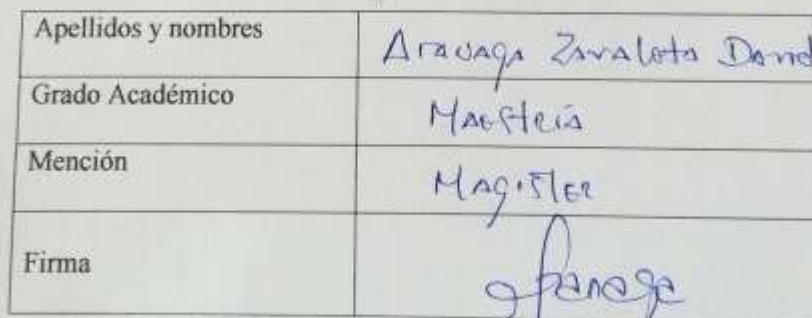 Apellidos y nombres Aravaga Zavaleta David
Grado Académico Maestría
Mención Magister
Firma